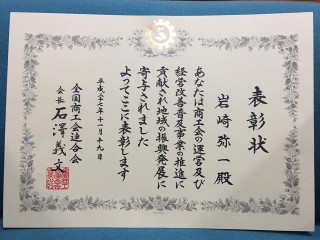 表彰状
岩崎弥一殿
あなたは商工会の運営及び
経営改善普及事業推進に
貢献され地域の振興発展に
寄与されました
よってここに表彰します
平成二十年十一月十九日
全国商工会連合会
会長 石澤義文